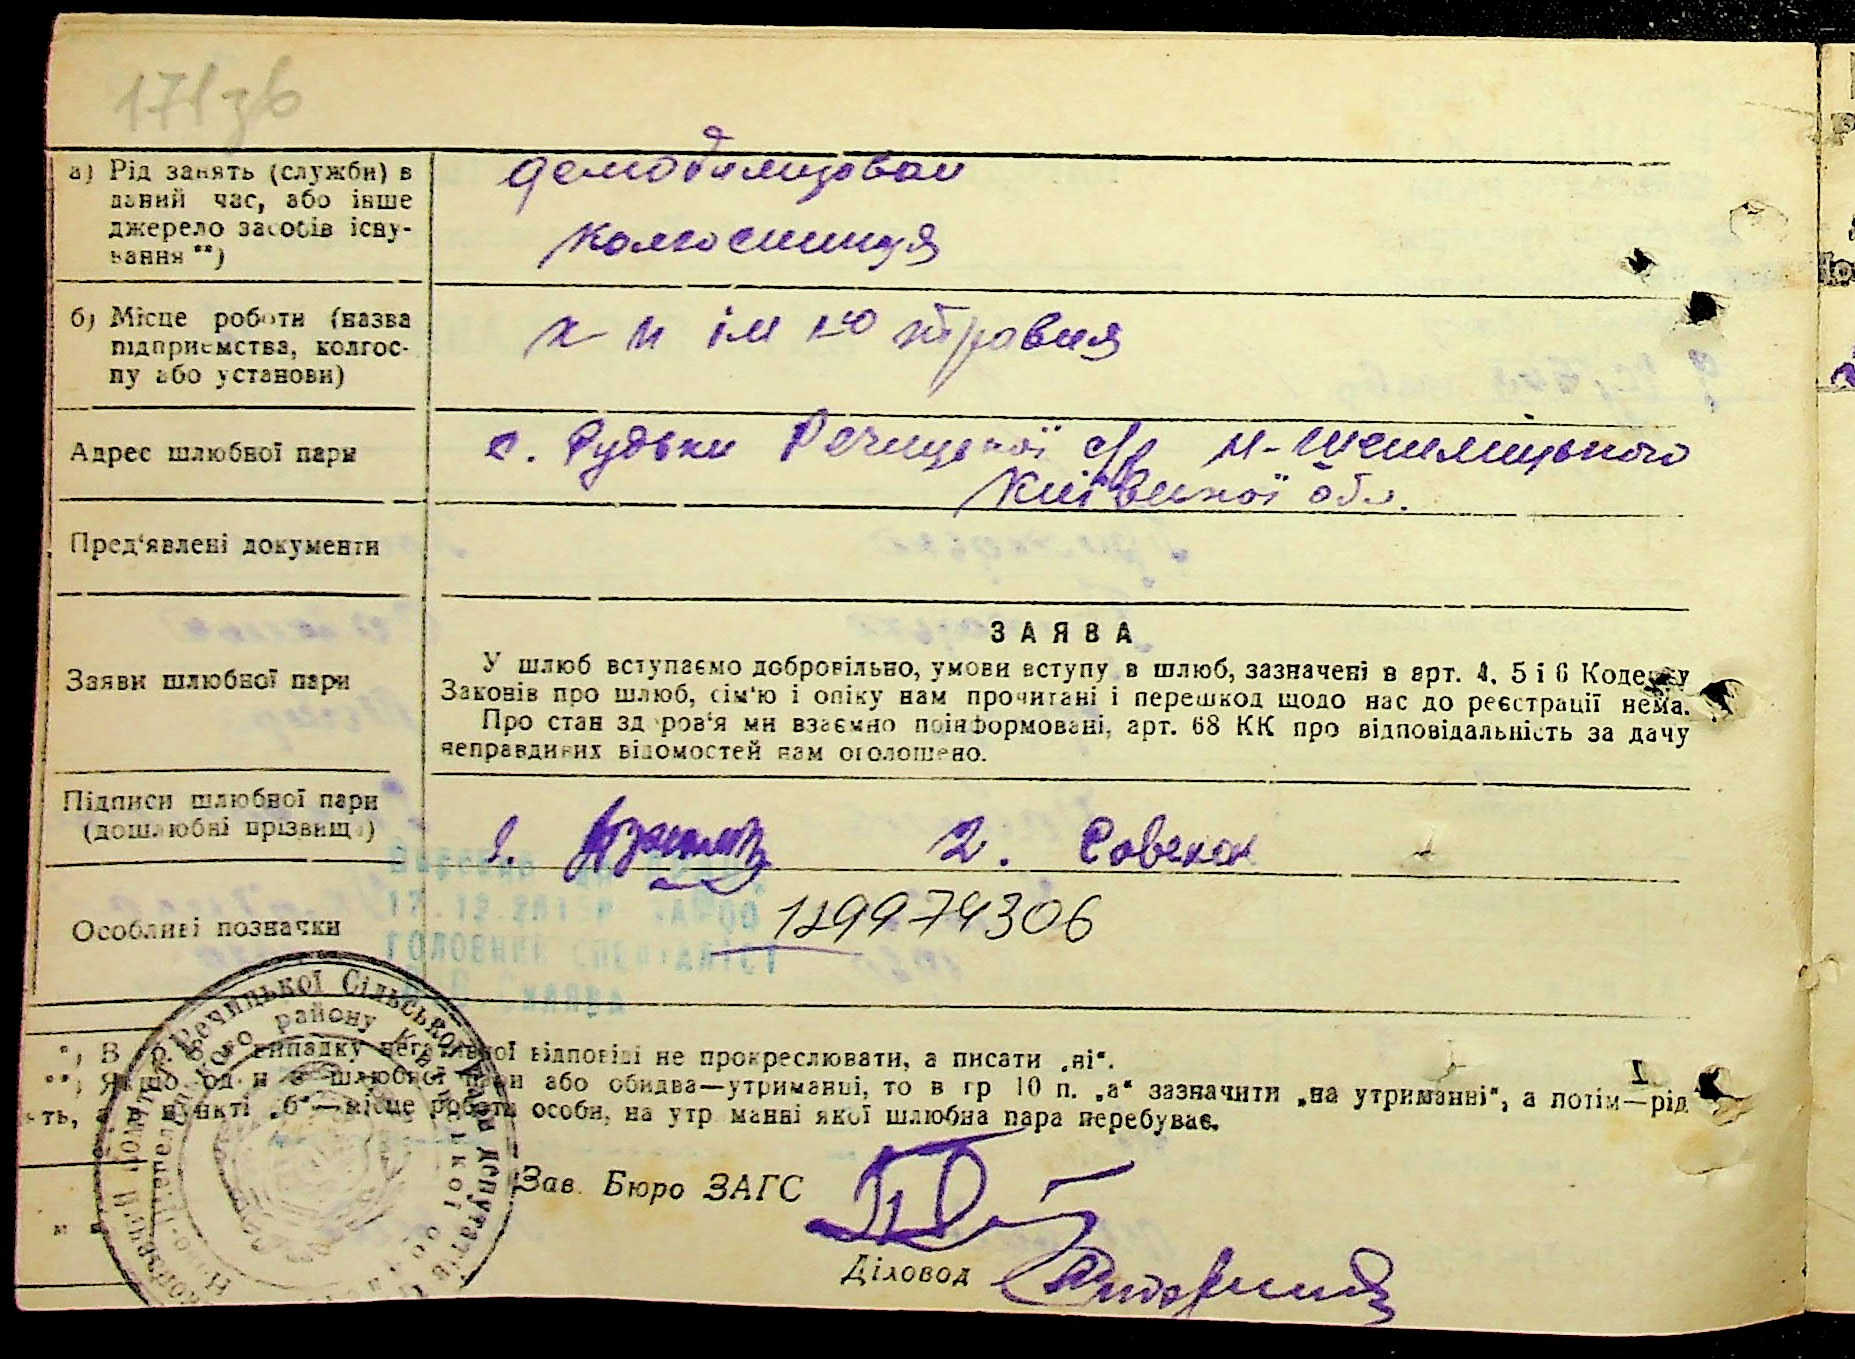 171зв
а) Рід занять (служби) в
даний час, або інше
джерело засобів існу-
вання **)
демобилизован
колгоспниця
б) Місце роботи (назва
підприємства, колгос-
пу або установи)
к-п ім 1-го травня
Адрес шлюбної пари
с. Рудьки Речицької с/р Н-Шепелицького
Київської обл.
Пред'явлені документи
Заяви шлюбної пари
ЗАЯВА
У шлюб вступаємо добровільно, умови вступу в шлюб, зазначені в арт. 4, 5 і 6 Кодексу
Законів про шлюб, сім'ю і опіку нам прочитані і перешкод щодо нас до реєстрації нема.
Про стан здоров'я ми взаємно поінформовані, арт. 68 КК про відповідальність за дачу
неправдивих відомостей нам оголошено.
Підписи шлюбної пари
(дошлюбні прізвища)
1.
2.
Особливі позначки
129974306
17.12.201
ГОЛОВНИЙ СПЕЦІАЛІСТ
випадку негативної відповіді не прокреслювати, а писати „ні“.
**) Якщо один з шлюбної пари або обидва—утриманці, то в гр 10 п. „а“ зазначити „на утриманні“, а потім—рід
пункті „б“—місце роботи особи, на утриманні якої шлюбна пара перебуває.
Речицької Сільської Ради депутатів
району Київської обл
Зав. Бюро ЗАГС
Діловод